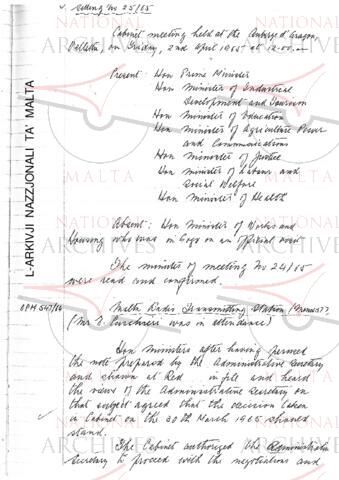 Meeting No 25/65
Cabinet meeting held at the Auberge d'Aragon,
Valletta, on Friday, 2nd April 1965 at 12.00
Present: Hon Prime Minister
Hon Minister of Industrial
Development and Tourism
Hon Minister of Education
Hon Minister of Agriculture Power
and Communications
Hon Minister of Justice
Hon Minister of Labour and
Social Welfare
Hon Minister of Health
Absent: Hon Minister of Works and
Housing who was in Gozo on an official visit
The minutes of meeting No 24/65
were read and confirmed.
OPM 547/64
Malta Radio Transmitting Station
(Mr was in attendance)
Hon Ministers after having perused
the note prepared by the Administrative Secretary
and shown at Red in file and heard
the views of the Administrative Secretary on
that subject agreed that the decision taken
in Cabinet on the 30th March 1965 should
stand.
The Cabinet authorized the Administrative
Secretary to proceed with the negotiations and
L-ARKIVJI NAZZJONALI TA' MALTA
NATIONAL
ARCHIVES
MALTA